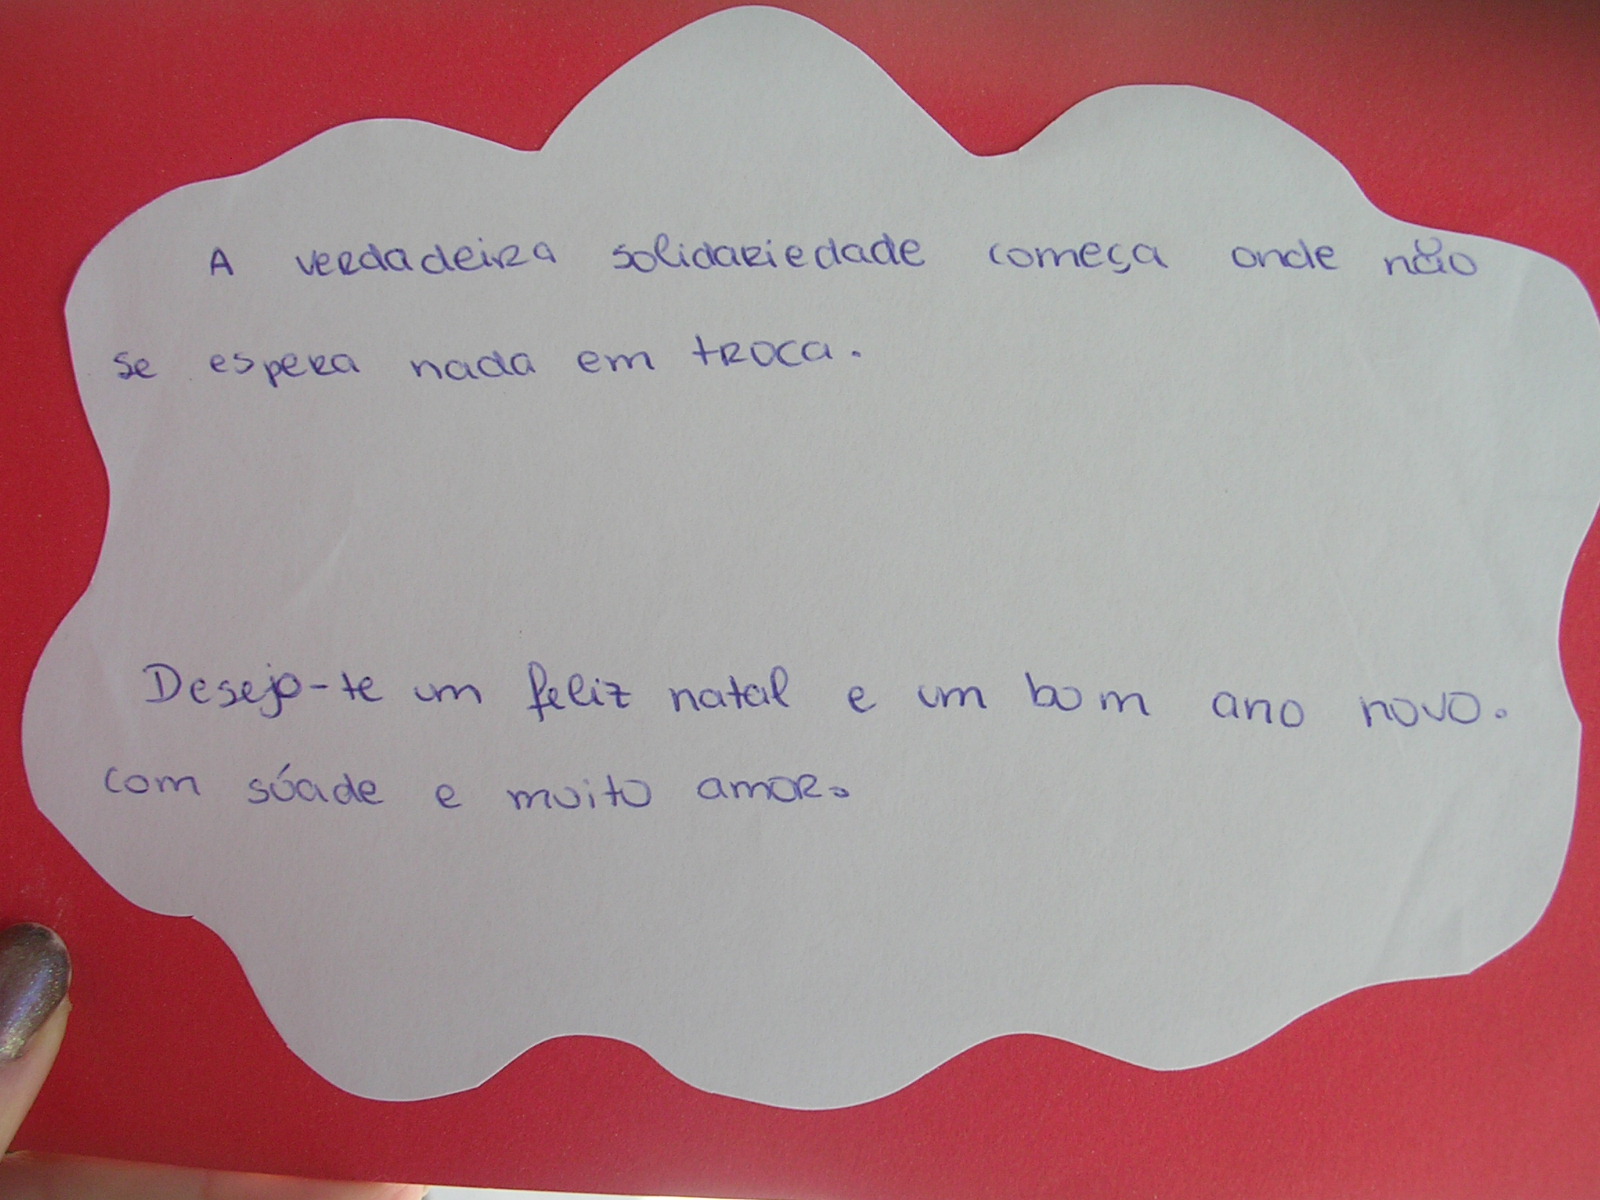 A verdadeira solidariedade começa onde não
se espera nada em troca.
Desejo-te um feliz natal e um bom ano novo.
com sóade e muito amor.